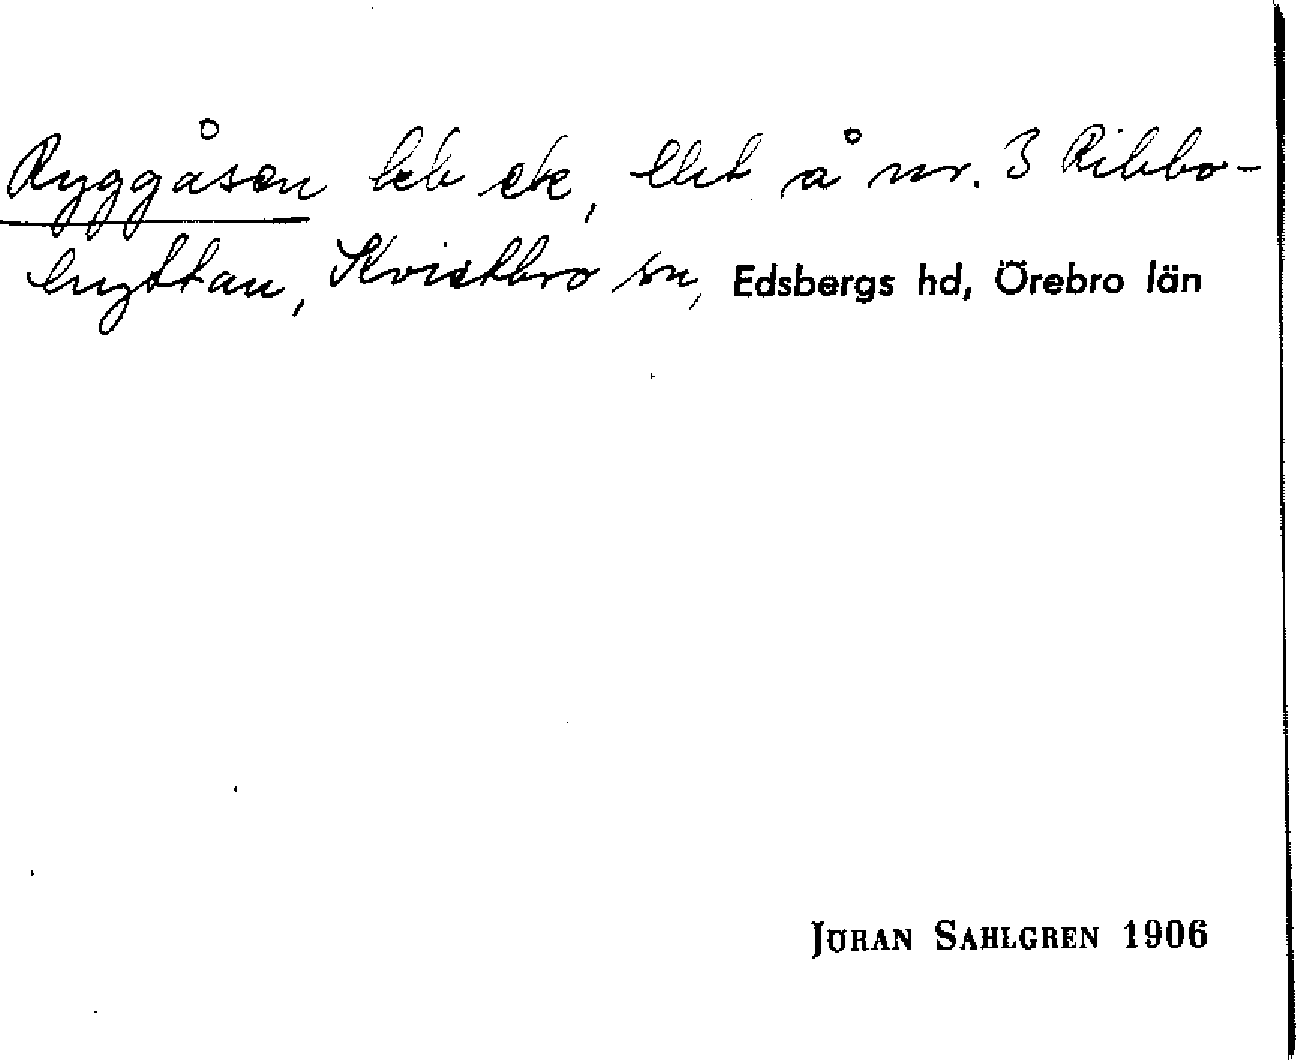 Ryggåsen lht å nr. 3 Ribbo-
hyttan, Kvistbro sn, Edsbergs hd, Örebro län
JÖRAN SAHLGREN 1906